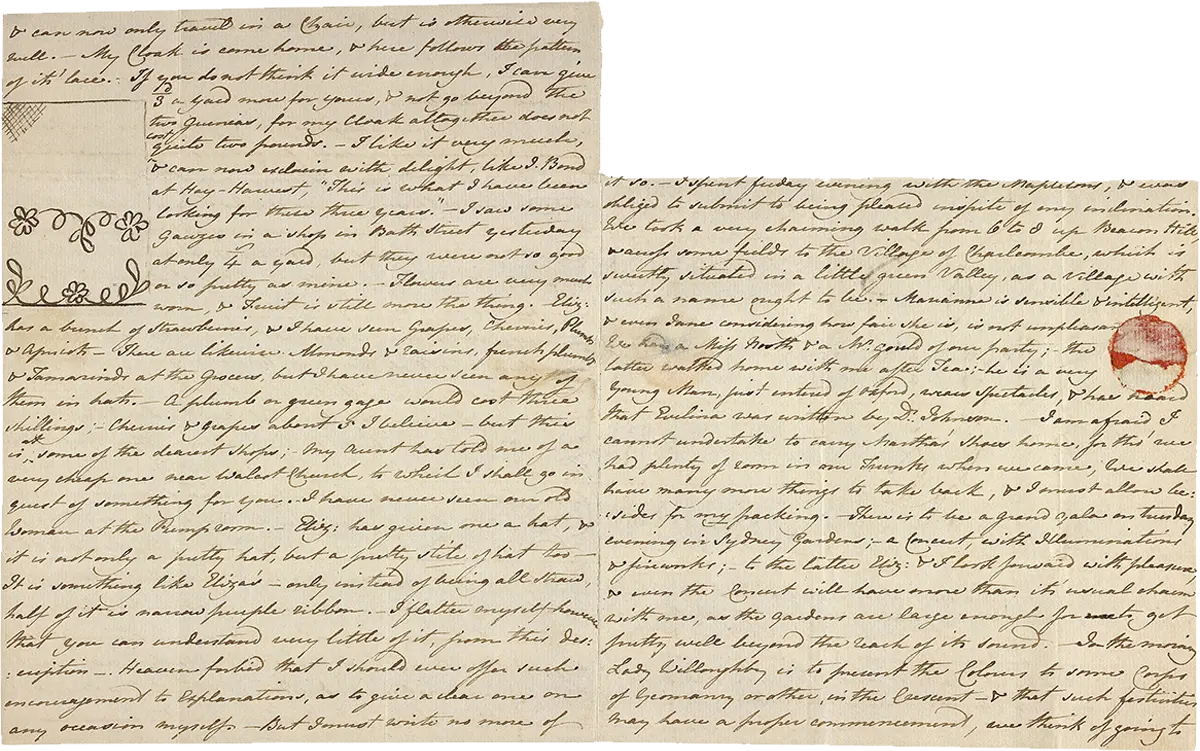 & can now only travel in a Chair, but is otherwise very
well. – My Cloak is come home, & here follows the pattern
of its' lace. – If you do not think it wide enough, I can give
3d a yard more for yours, & not go beyond the
two Guineas, for my Cloak altogether does not
cost
quite two pounds. – I like it very much,
& can now exclaim with delight, like J. Bond
at Hay-Harvest, "This is what I have been
looking for these three years." – I saw some
Gauzes in a shop in Bath Street yesterday
at only 4/ a yard, but they were not so good
or so pretty as mine. – Flowers are very much
worn, & Fruit is still more the thing – Eliz:
has a bunch of Strawberries, & I have seen Grapes, Cherries, Plumbs
& Apricots – There are likewise Almonds & raisins, french plumbs
& Tamarinds at the Grocers, but I have never seen any of
them in hats. – A plumb or green gage would cost three
shillings; – Cherries & Grapes about 5 I believe – but this
is at some of the dearest Shops; – My Aunt has told me of a
very cheap one near Walcot Church, to which I shall go in
quest of something for you. – I have never seen an old
Woman at the Pump room. – Eliz: has given me a hat, &
it is not only a pretty hat, but a pretty stile of hat too –
It is something like Eliza's – only instead of being all straw,
half of it is narrow purple ribbon. – I flatter myself however
that you can understand very little of it, from this des:
:cription –. Heaven forbid that I should ever offer such
encouragement to Explanations, as to give a clear one on
any occasion myself. – But I must write no more of
it so. – I spent friday evening with the Mapletons, & was
obliged to submit to being pleased inspite of my inclination.
We took a very charming walk from 6 to 8 up Beacon Hill
& across some fields to the Village of Charlcombe, which is
sweetly situated in a little green Valley, as a Village with
such a name ought to be. – Marianne is sensible & intelligent,
& even Jane considering how fair she is, is not unpleasant.
We had a Miss North & a Mr. Gould of our party; – the
latter walked home with me after Tea; – he is a very
Young Man, just entered of Oxford, wears Spectacles, & has heard
that Evelina was written by Dr. Johnson. – I am afraid I
cannot undertake to carry Martha's Shoes home, for tho' we
had plenty of room in our Trunks when we came, We shall
have many more things to take back, & I must allow be:
:sides for my packing. – There is to be a grand gala on tuesday
evening in Sydney Gardens; – a Concert, with Illuminations
& fireworks; – to the latter Eliz: & I look forward with pleasure,
& even the Concert will have more than it's usual charm
with me, as the Gardens are large enough for me to get
pretty well beyond the reach of its sound. – In the morning
Lady Willoughby is to present the Colours to some Corps
of Yeomanry or other, in the Crescent – & that such festivities
may have a proper commencement, we think of going to